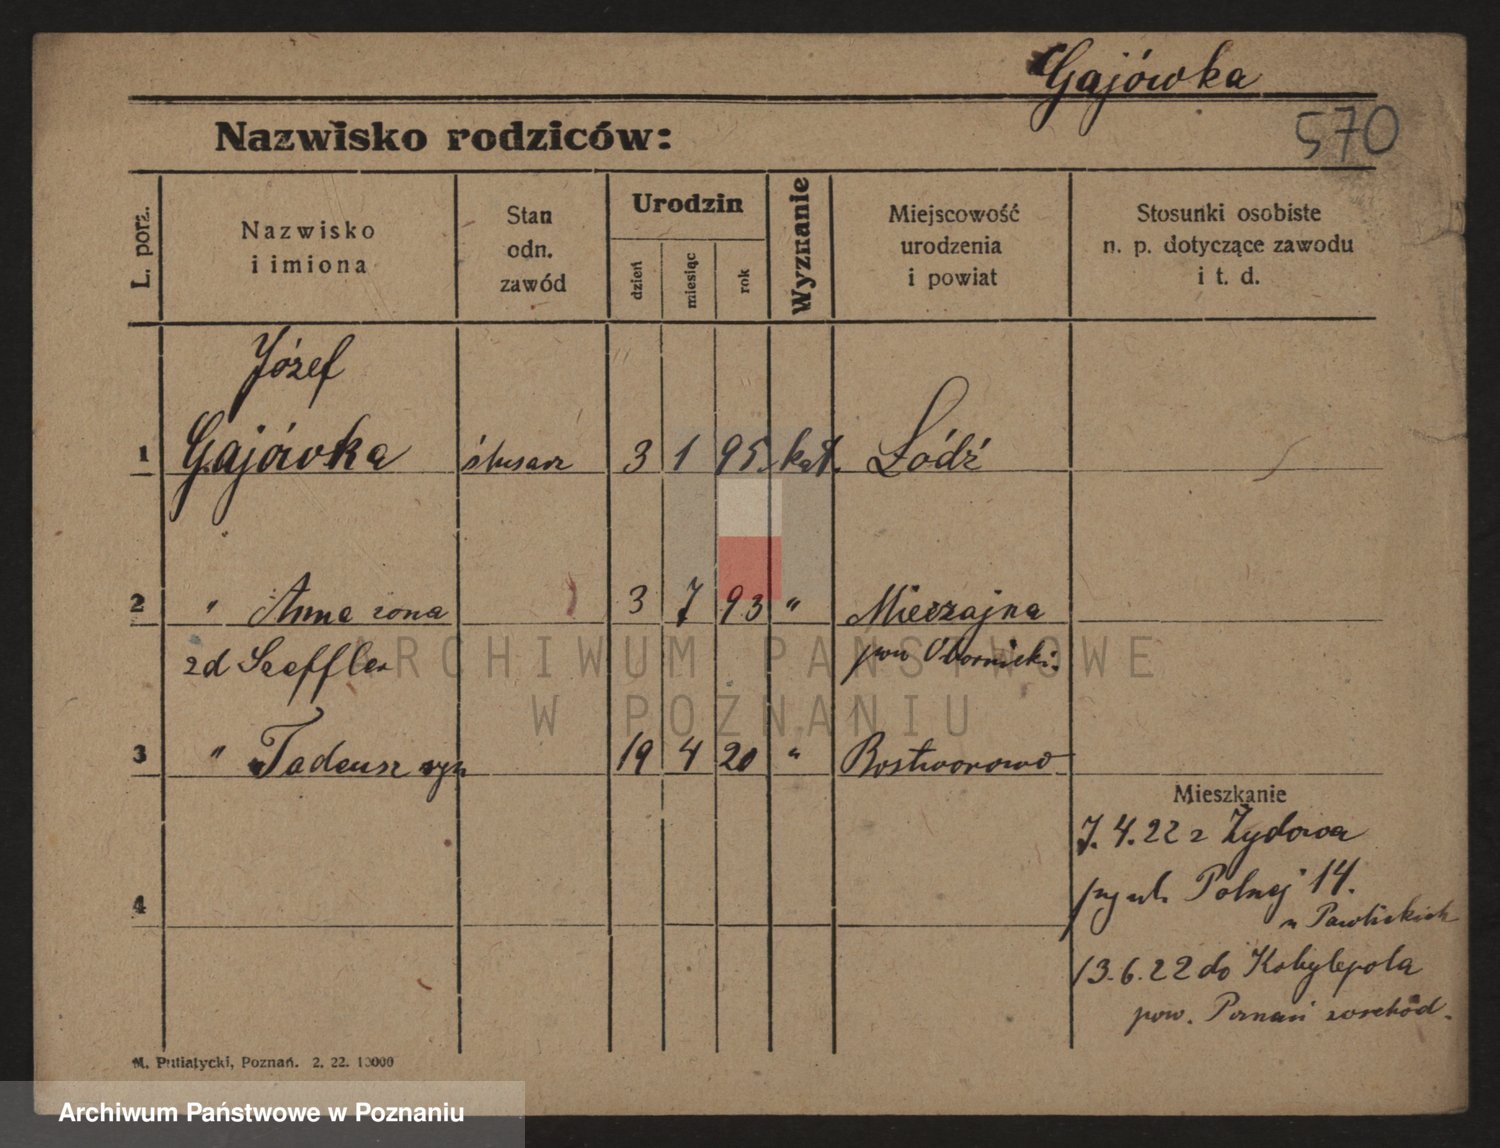 Gajówka
570
Nazwisko rodziców:
L. porz.
Nazwisko
i imiona
Stan
odn.
zawód
Urodzin
dzień
miesiąc
rok
Wyznanie
Miejscowość
urodzenia
i powiat
Stosunki osobiste
n. p. dotyczące zawodu
i t. d.
Józef
1 Gajówka ślusarz 3 1 95 kat. Łódź
2 " Anna żona 3 7 93 "
zd Scheffler pow Obornicki.
3 " Tadeusz syn 19 4 20 "
Mieszkanie
7.4.22 z Żydowa
przy ul. Polnej 14.
4
u Pawlickich
13.6.22 do Kobylepola
pow. Poznań wschód.
M. Putiatycki, Poznań. 2. 22. 10000
ARCHIWUM PAŃSTWOWE
W POZNANIU
Archiwum Państwowe w Poznaniu